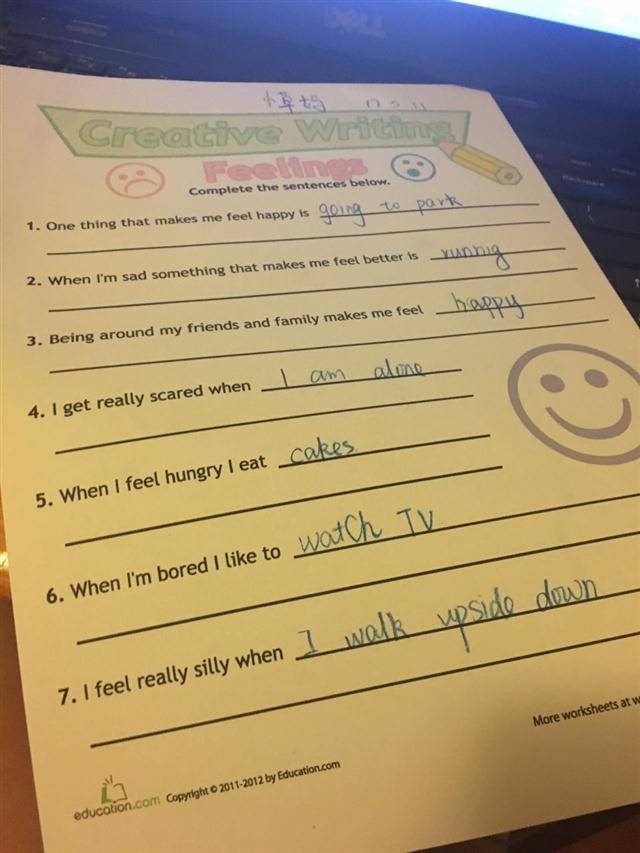 17 5 11
Creative Writing
Feelings
Complete the sentences below.
1. One thing that makes me feel happy is going to park
2. When I'm sad something that makes me feel better is runnig
3. Being around my friends and family makes me feel happy
4. I get really scared when I am alone
5. When I feel hungry I eat cakes
6. When I'm bored I like to watch TV
7. I feel really silly when I walk upside down
More worksheets at w
education.com Copyright © 2011-2012 by Education.com